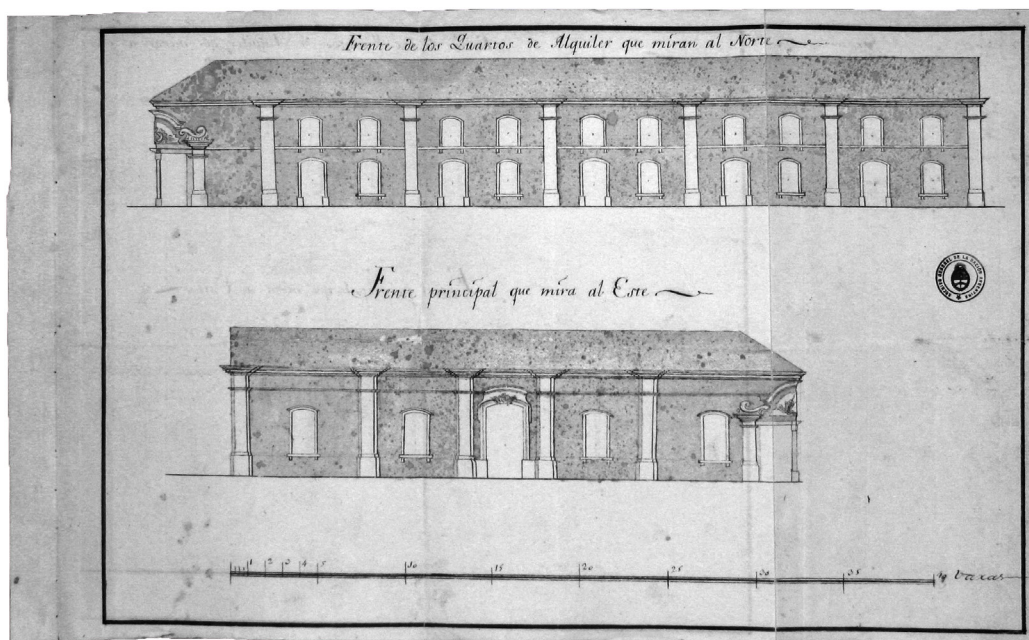 Frente de los Quartos de Alquiler que miran al Norte
Frente principal que mira al Este
1 2 3 4 5 10 15 20 25 30 35 40 varas